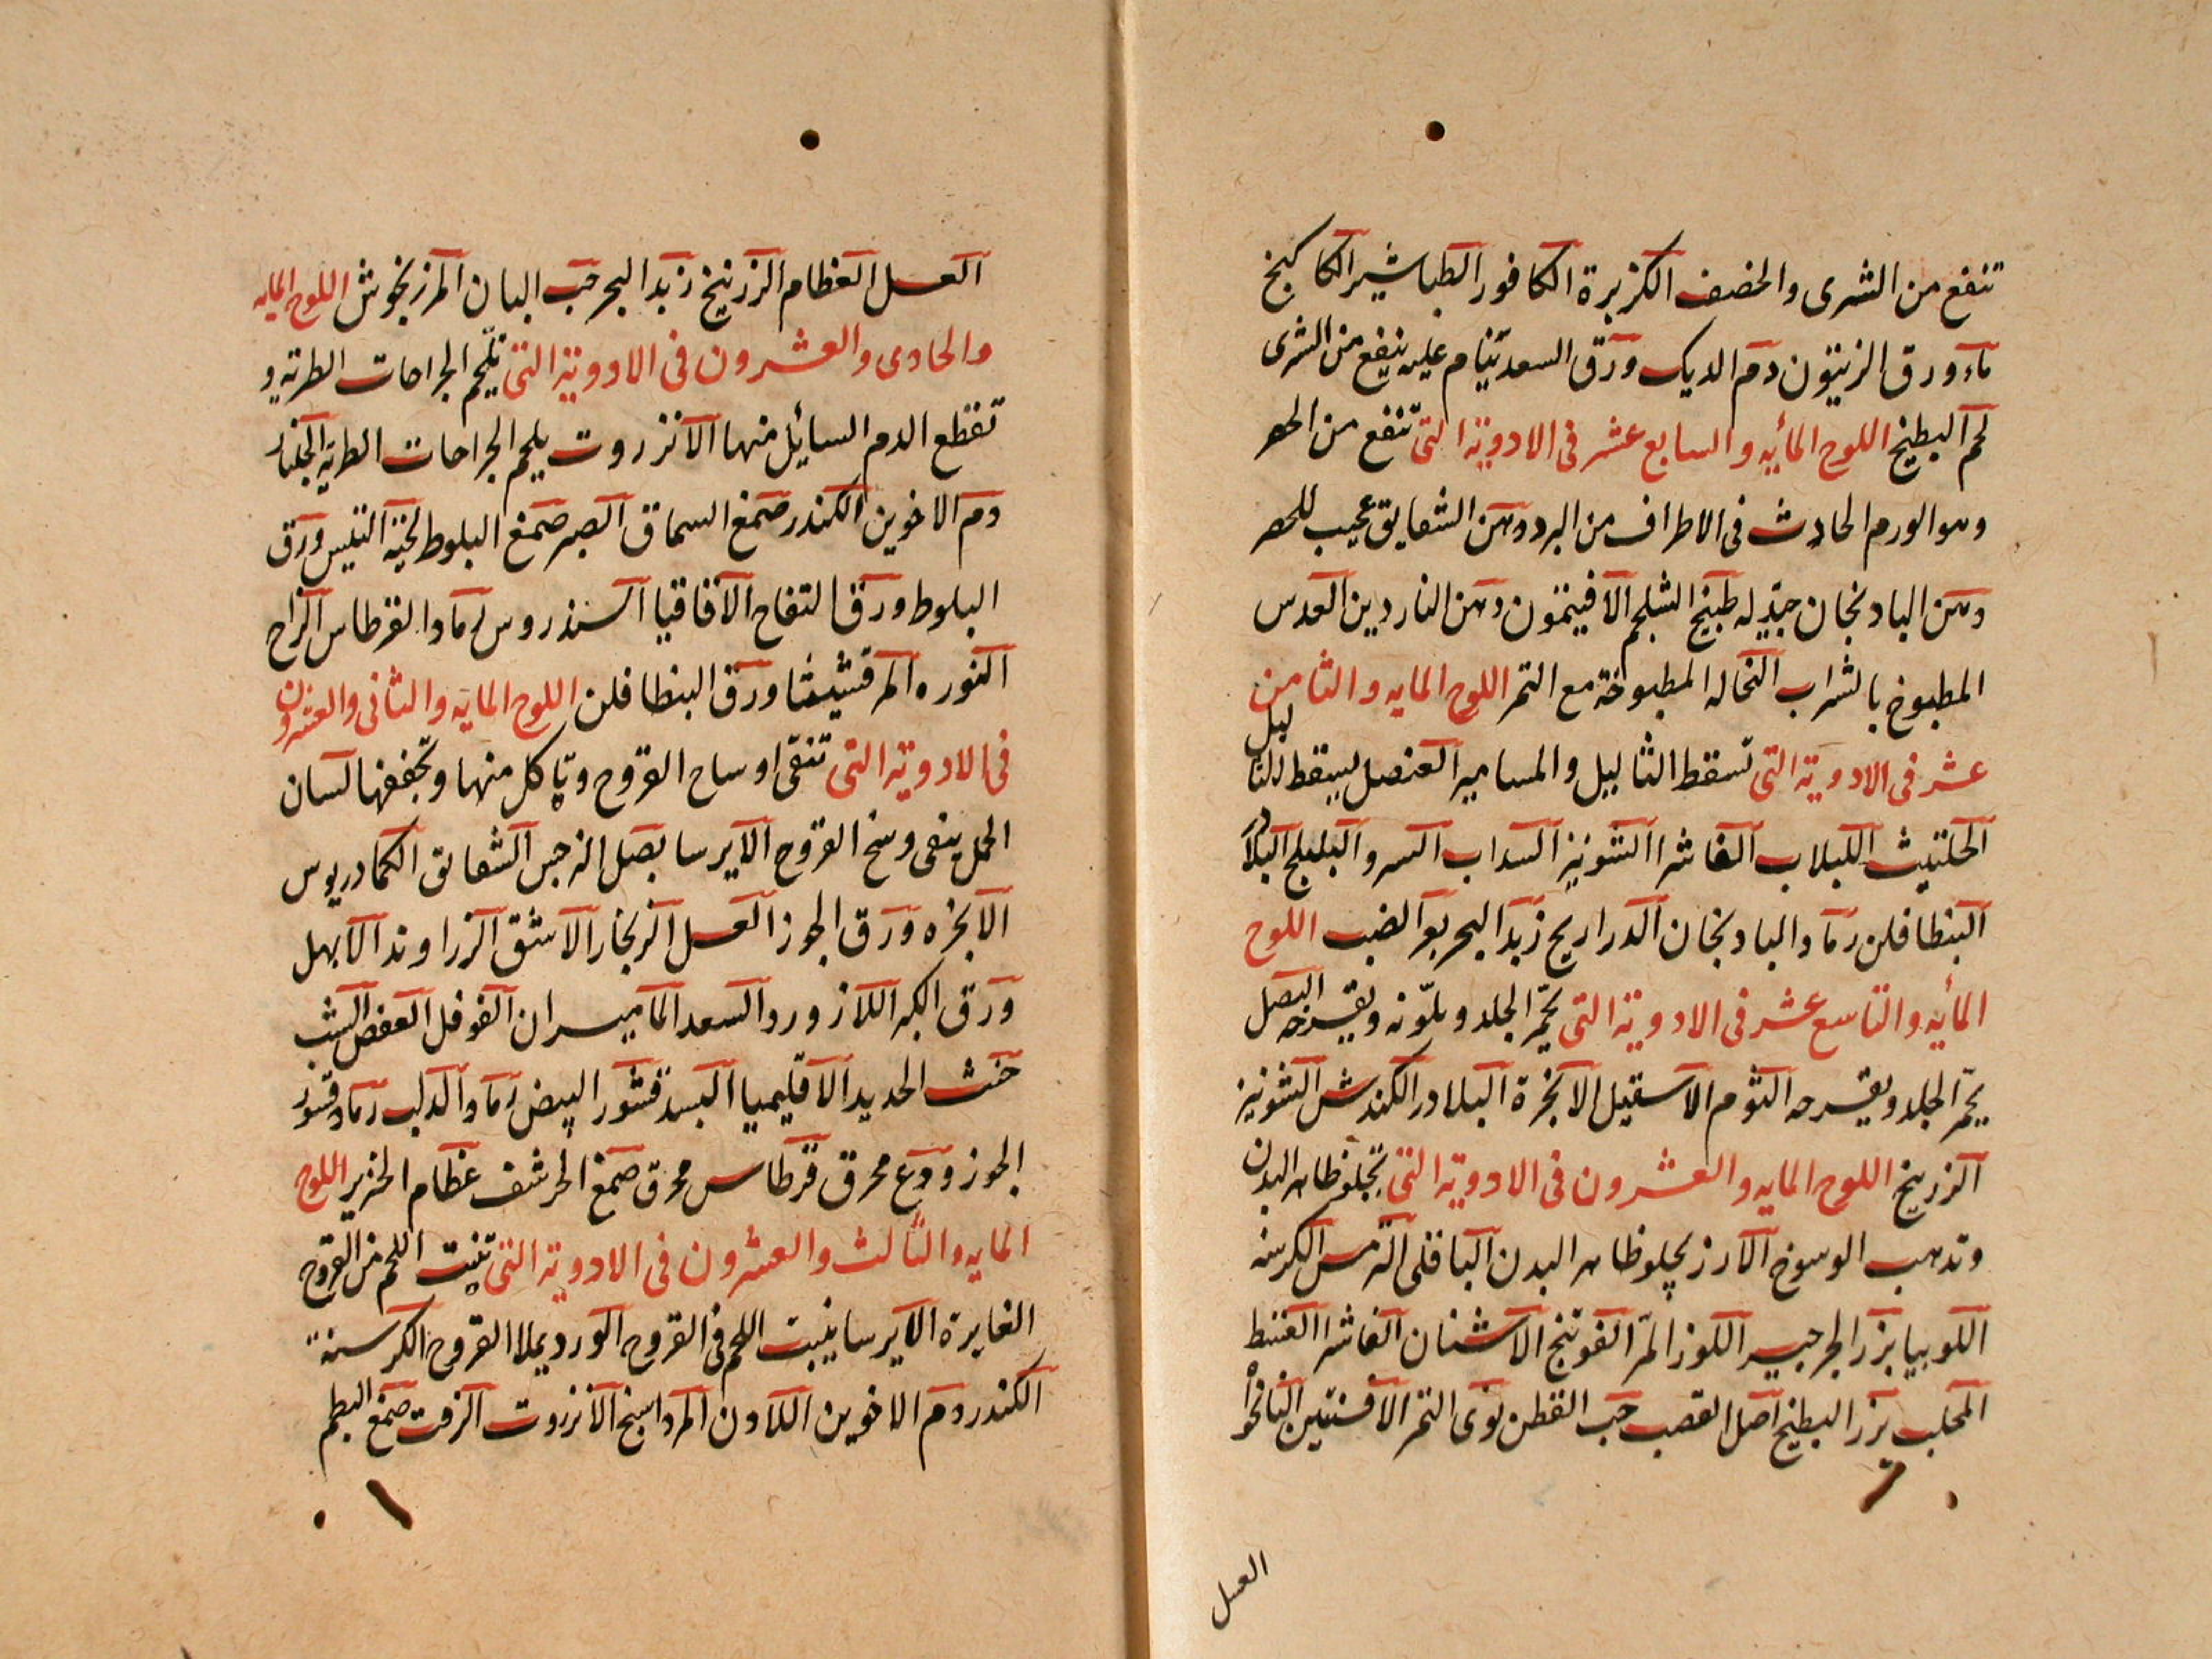 تنفع من الشرى والحصف الكزبرة الكافور الطباشير الكاكنج
ماء ورق الزيتون دم الديك ورق السعد ينام عليه ينفع من الشرى
لحم البطيخ اللوح المأيه والسابع عشر فى الادوية التى تنفع من الحصر
وهو الورم الحادث فى الاطراف من البرد دهن الشقايق عجيب للحصر
دهن البادنجان جيد له طبيخ الشلجم الافيثمون دهن الناردين العدس
المطبوخ بالشراب النخاله المطبوخة مع التمر اللوح المايه والثامن
عشر فى الادوية التى تسقط الثاليل والمسامير العنصل يسقط الثاليل
الحلتيث اللبلاب الفاشرا الشونيز السداب السرو البليلج البلاد
البنطافلن رماد البادنجان الدراريح زبد البحر بعر الضب اللوح
المأيه والتاسع عشر فى الادوية التى تحمر الجلد وتلونه وتقرحه البصل
يحمر الجلد ويقرحه الثوم الاسقيل الانجرة البلادر الكندش الشونيز
الزرنيخ اللوح المايه والعشرون فى الادوية التى تجلو ظاهر البدن
وتدهب الوسوخ الارز يجلو ظاهر البدن الباقلى الترمس الكرسنه
اللوبيا بزر الجرجير اللوز المر الفوتنج الاشنان الفاشرا القنط
المحلب بزر البطيخ اصل القصب حب القطن نوى التمر الافسنتين النانخوا
العسل
العسل العظام الزرنيخ زبد البحر حب البان المرزنجوش اللوح المايه
والحادى والعشرون فى الادوية التى تلحم الجراحات الطرية و
تقطع الدم السائل منها الانزروت يلحم الجراحات الطريه الجلنار
دم الاخوين الكندر صمغ السماق الصبر صمغ البلوط لحية التيس ورق
البلوط ورق التفاح الاقاقيا السندروس رماد القرطاس الزاج
النوره المرقشيثا ورق البنطافلن اللوح المايه والثانى والعشرون
فى الادوية التى تنقى اوساح القروح وياكل منها وتجففها لسان
الحمل ينقى وسخ القروح الايرسا بصل النرجس الشقايق الكمادريوس
الانجره ورق الجوز العسل الزنجار الاشق الزراوند الابهل
ورق الكبر اللازورد السعد الماميران الفوفل العفص الشب
خبث الحديد الاقليميا البسد قشور البيض رماد الدلب رماد قشور
الجوز ودع محرق قرطاس محرق صمغ الحرشف عظام الخنزير اللوح
المايه والثالث والعشرون فى الادوية التى تنبت اللحم من القروح
الغايرة الايرسا ينبت اللحم فى القروح الورد يملا القروح الكرسنة
الكندر دم الاخوين اللادن المرداسنج الانزروت الزفت صمغ البطم